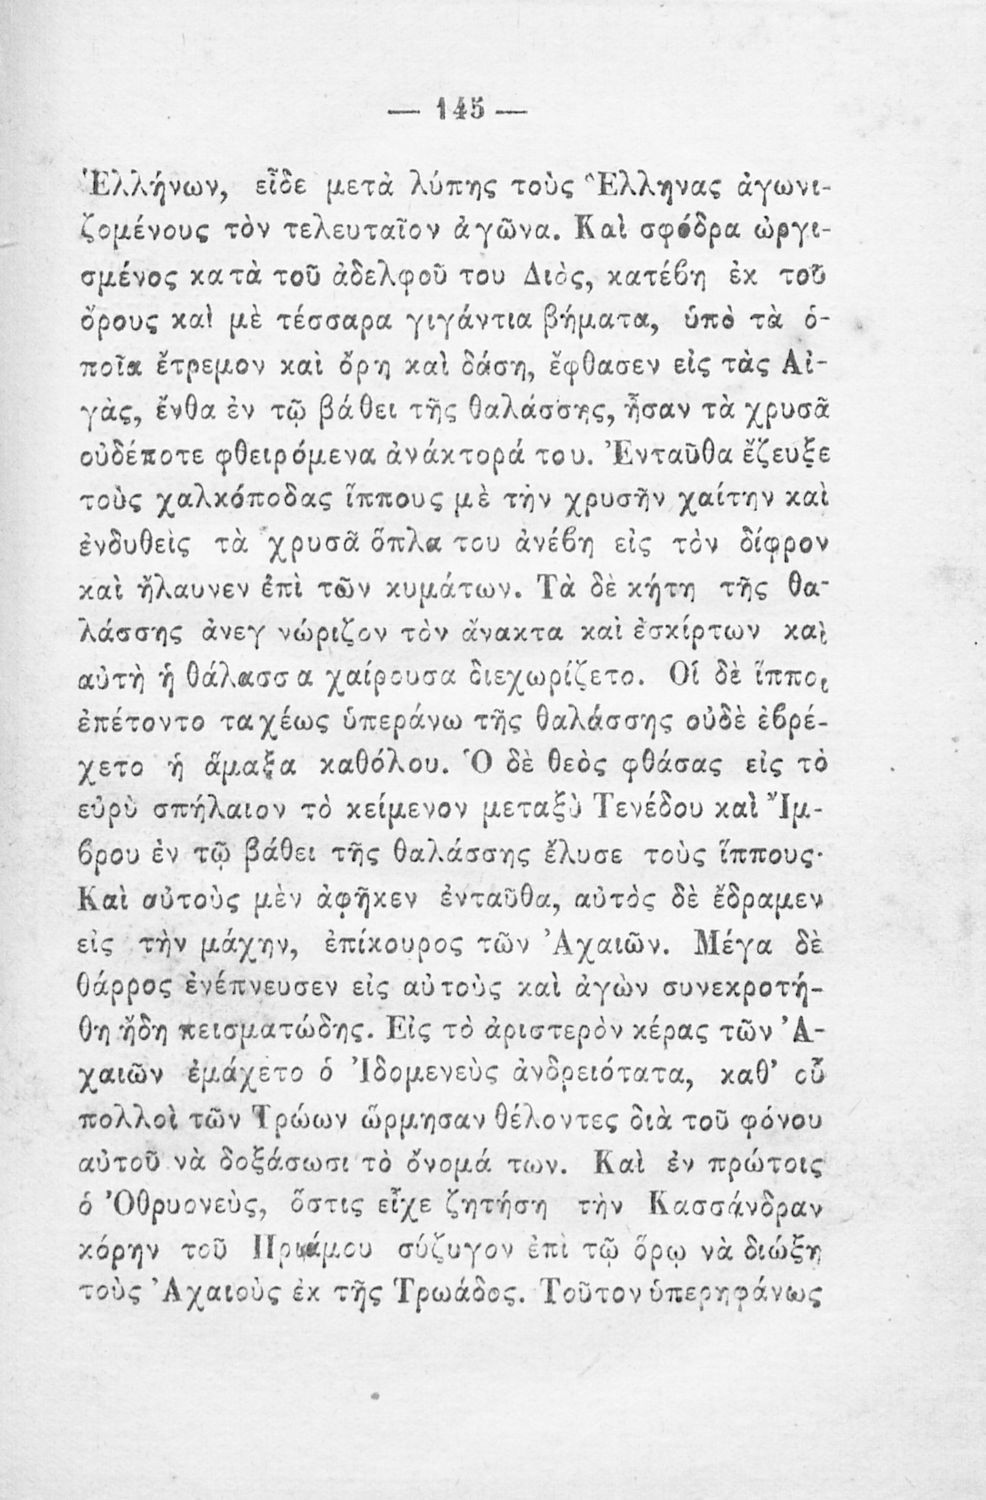 — 145 —
Ἑλλήνων, εἶδε μετὰ λύπης τοὺς Ἕλληνας ἀγωνι-
ζομένους τὸν τελευταῖον ἀγῶνα. Καὶ σφόδρα ὠργι-
σμένος κατὰ τοῦ ἀδελφοῦ του Διὸς, κατέβη ἐκ τοῦ
ὄρους καὶ μὲ τέσσαρα γιγάντια βήματα, ὑπὸ τὰ ὁ-
ποῖα ἔτρεμον καὶ ὄρη καὶ δάση, ἔφθασεν εἰς τὰς Αἰ-
γὰς, ἔνθα ἐν τῷ βάθει τῆς θαλάσσης, ἦσαν τὰ χρυσᾶ
οὐδέποτε φθειρόμενα ἀνάκτορά του. Ἐνταῦθα ἔζευξε
τοὺς χαλκόποδας ἵππους μὲ τὴν χρυσῆν χαίτην καὶ
ἐνδυθεὶς τὰ χρυσᾶ ὅπλα του ἀνέβη εἰς τὸν δίφρον
καὶ ἤλαυνεν ἐπὶ τῶν κυμάτων. Τὰ δὲ κήτη τῆς θα-
λάσσης ἀνεγνώριζον τὸν ἄνακτα καὶ ἐσκίρτων καὶ
αὐτὴ ἡ θάλασσα χαίρουσα διεχωρίζετο. Οἱ δὲ ἵπποι
ἐπέτοντο ταχέως ὑπεράνω τῆς θαλάσσης οὐδὲ ἐβρέ-
χετο ἡ ἅμαξα καθόλου. Ὁ δὲ θεὸς φθάσας εἰς τὸ
εὐρὺ σπήλαιον τὸ κείμενον μεταξὺ Τενέδου καὶ Ἴμ-
βρου ἐν τῷ βάθει τῆς θαλάσσης ἔλυσε τοὺς ἵππους·
Καὶ αὐτοὺς μὲν ἀφῆκεν ἐνταῦθα, αὐτὸς δὲ ἔδραμεν
εἰς τὴν μάχην, ἐπίκουρος τῶν Ἀχαιῶν. Μέγα δὲ
θάρρος ἐνέπνευσεν εἰς αὐτοὺς καὶ ἀγὼν συνεκροτή-
θη ἤδη πεισματώδης. Εἰς τὸ ἀριστερὸν κέρας τῶν Ἀ-
χαιῶν ἐμάχετο ὁ Ἰδομενεὺς ἀνδρειότατα, καθ’ οὗ
πολλοὶ τῶν Τρώων ὥρμησαν θέλοντες διὰ τοῦ φόνου
αὐτοῦ νὰ δοξάσωσι τὸ ὄνομά των. Καὶ ἐν πρώτοις
ὁ Ὀθρυονεὺς, ὅστις εἶχε ζητήση τὴν Κασσάνδραν
κόρην τοῦ Πριάμου σύζυγον ἐπὶ τῷ ὅρῳ νὰ διώξῃ
τοὺς Ἀχαιοὺς ἐκ τῆς Τρωάδος. Τοῦτον ὑπερηφάνως